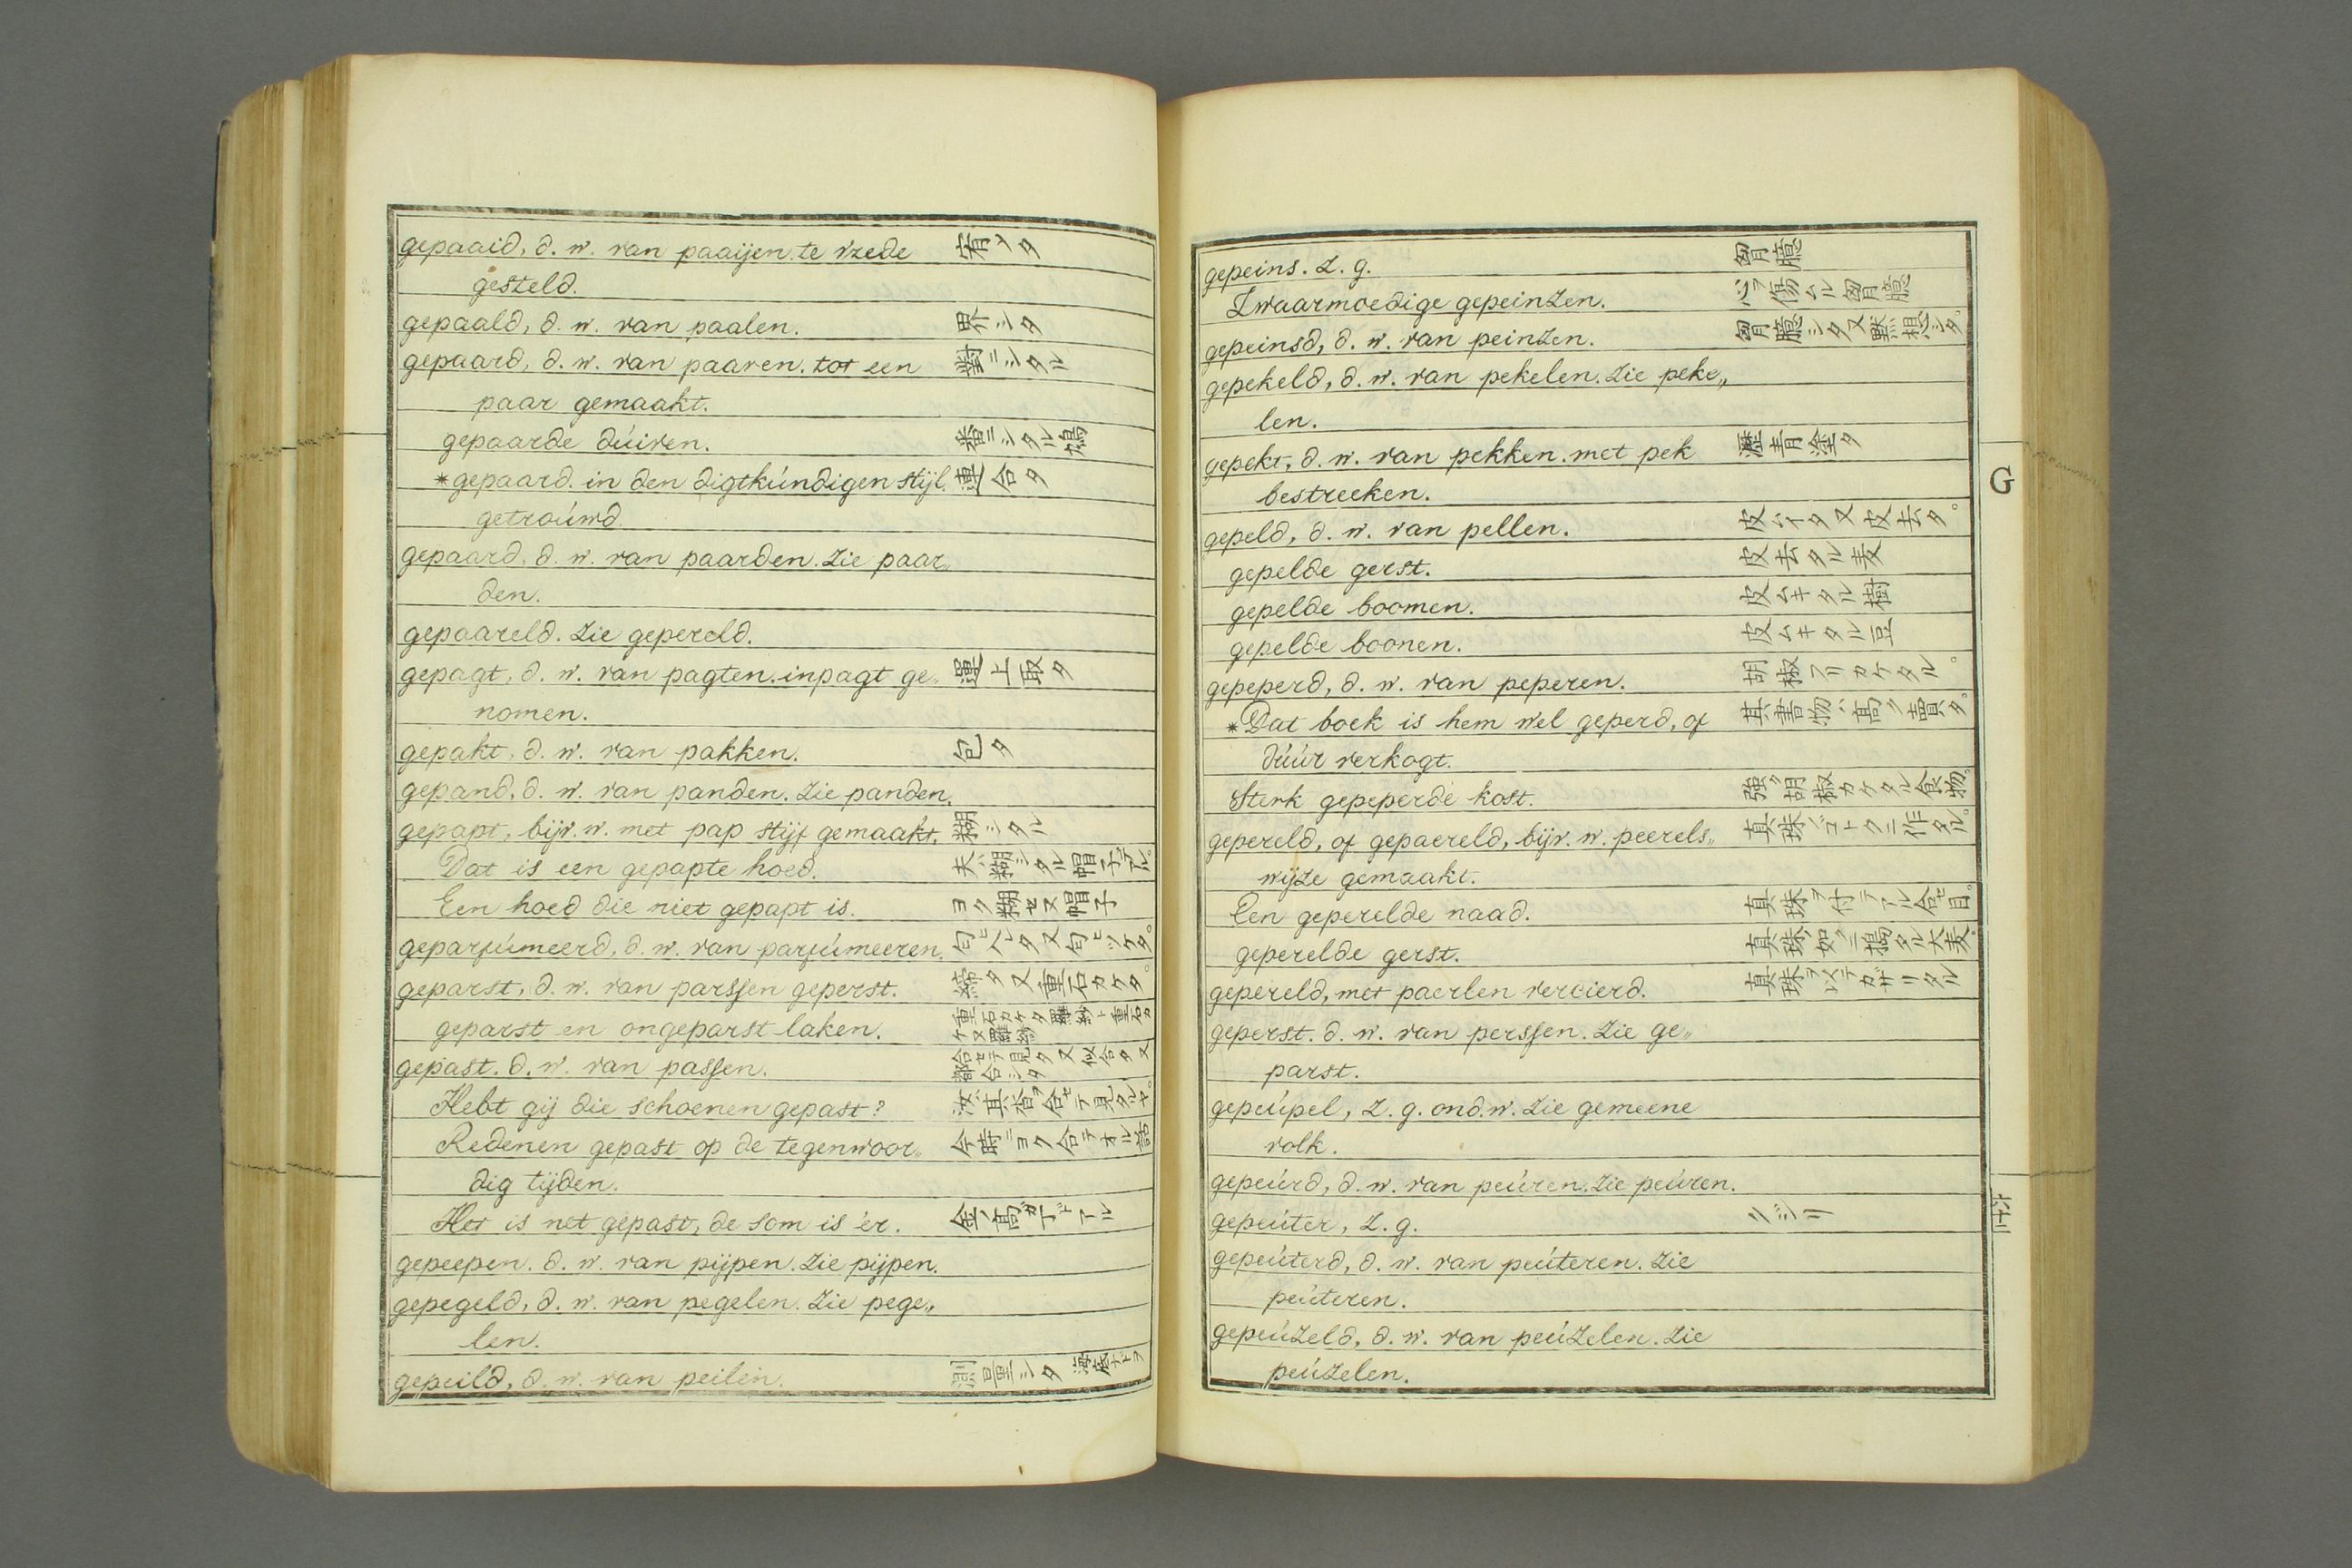 gepaaid, d. w. van paaijen. te vrede 宥シタ
gesteld.
gepaald, d. w. van paalen. 界シタ
gepaard, d. w. van paaren. tot een 對ニシタル
paar gemaakt.
gepaarde dúiven. 番ニシタル鳩
*gepaard. in den digtkúndigen stijl. 連合タ
getroúwd
gepaard, d. w. van paarden. Zie paar„
den.
gepaareld. Zie gepereld.
gepagt, d. w. van pagten. in pagt ge„ 運上取タ
nomen.
gepakt, d. w. van pakken. 包タ
gepand, d. w. van panden. Zie panden.
gepapt, bijv. w. met pap stijf gemaakt. 糊シタル
Dat is een gepapte hoed. 夫ハ糊シタル帽子デアル。
Een hoed die niet gepapt is. ヨク糊セヌ帽子
geparfúmeerd, d. w. van parfúmeeren. 匂ヒ入レタ又匂ヒツケタ。
geparst, d. w. van parssen geperst. 締タ又重石カケタ。
geparst en ongeparst laken. 重石カケタ羅紗ト重石カ
ケヌ羅紗
gepast. d. w. van passen. 合セテ見タ又似合タ又
都合シタ
Hebt gij die schoenen gepast? 汝ハ其沓ヲ合セテ見タルヤ。
Redenen gepast op de tegenwoor„ 今時ニヨク合テオル話
dig tijden.
Het is net gepast, de som is 'er. 金ノ高ガ丁ドアル
gepeepen. d. w. van pijpen. Zie pijpen.
gepegeld, d. w. van pegelen. Zie pege„
len.
gepeild, d. w. van peilin. 測量シタ 海底ナドヲ
gepeins. Z. g. 胷臆
Zwaarmoedige gepeinzen. 心ヲ傷ムル胷臆
gepeinsd, d. w. van peinzen. 胷臆シタ又黙想シタ。
gepekeld, d. w. van pekelen. Zie peke„
len.
gepekt, d. w. van pekken. met pek 瀝青塗タ
bestreeken.
gepeld, d. w. van pellen. 皮ムイタ又皮去タ。
gepelde gerst. 皮去タル麦
gepelde boomen. 皮ムキタル樹
gepelde boonen. 皮ムキタル豆
gepeperd, d. w. van peperen. 胡椒フリカケタル。
*Dat boek is hem wel geperd, of 其書物ハ高ク賣タ。
dúúr verkogt.
Sterk gepeperde kost. 強ク胡椒カケタル食物。
gepereld, of gepaereld, bijv. w. peerels„ 真珠ノゴトクニ作タル。
wijze gemaakt.
Een geperelde naad. 真珠ヲ付テアル合セ目。
geperelde gerst. 真珠ノ如クニ搗タル大麦。
gepereld, met paerlen vercierd. 真珠ヲ以テカザリタル
geperst. d. w. van perssen. Zie ge„
parst.
gepeúpel, Z. g. ond. w. Zie gemeene
volk.
gepeúrd, d. w. van peúren. Zie peúren.
gepeúter, Z. g. クジリ
gepeúterd, d. w. van peúteren. Zie
peúteren.
gepeúzeld, d. w. van peúzelen. Zie
peúzelen.
G